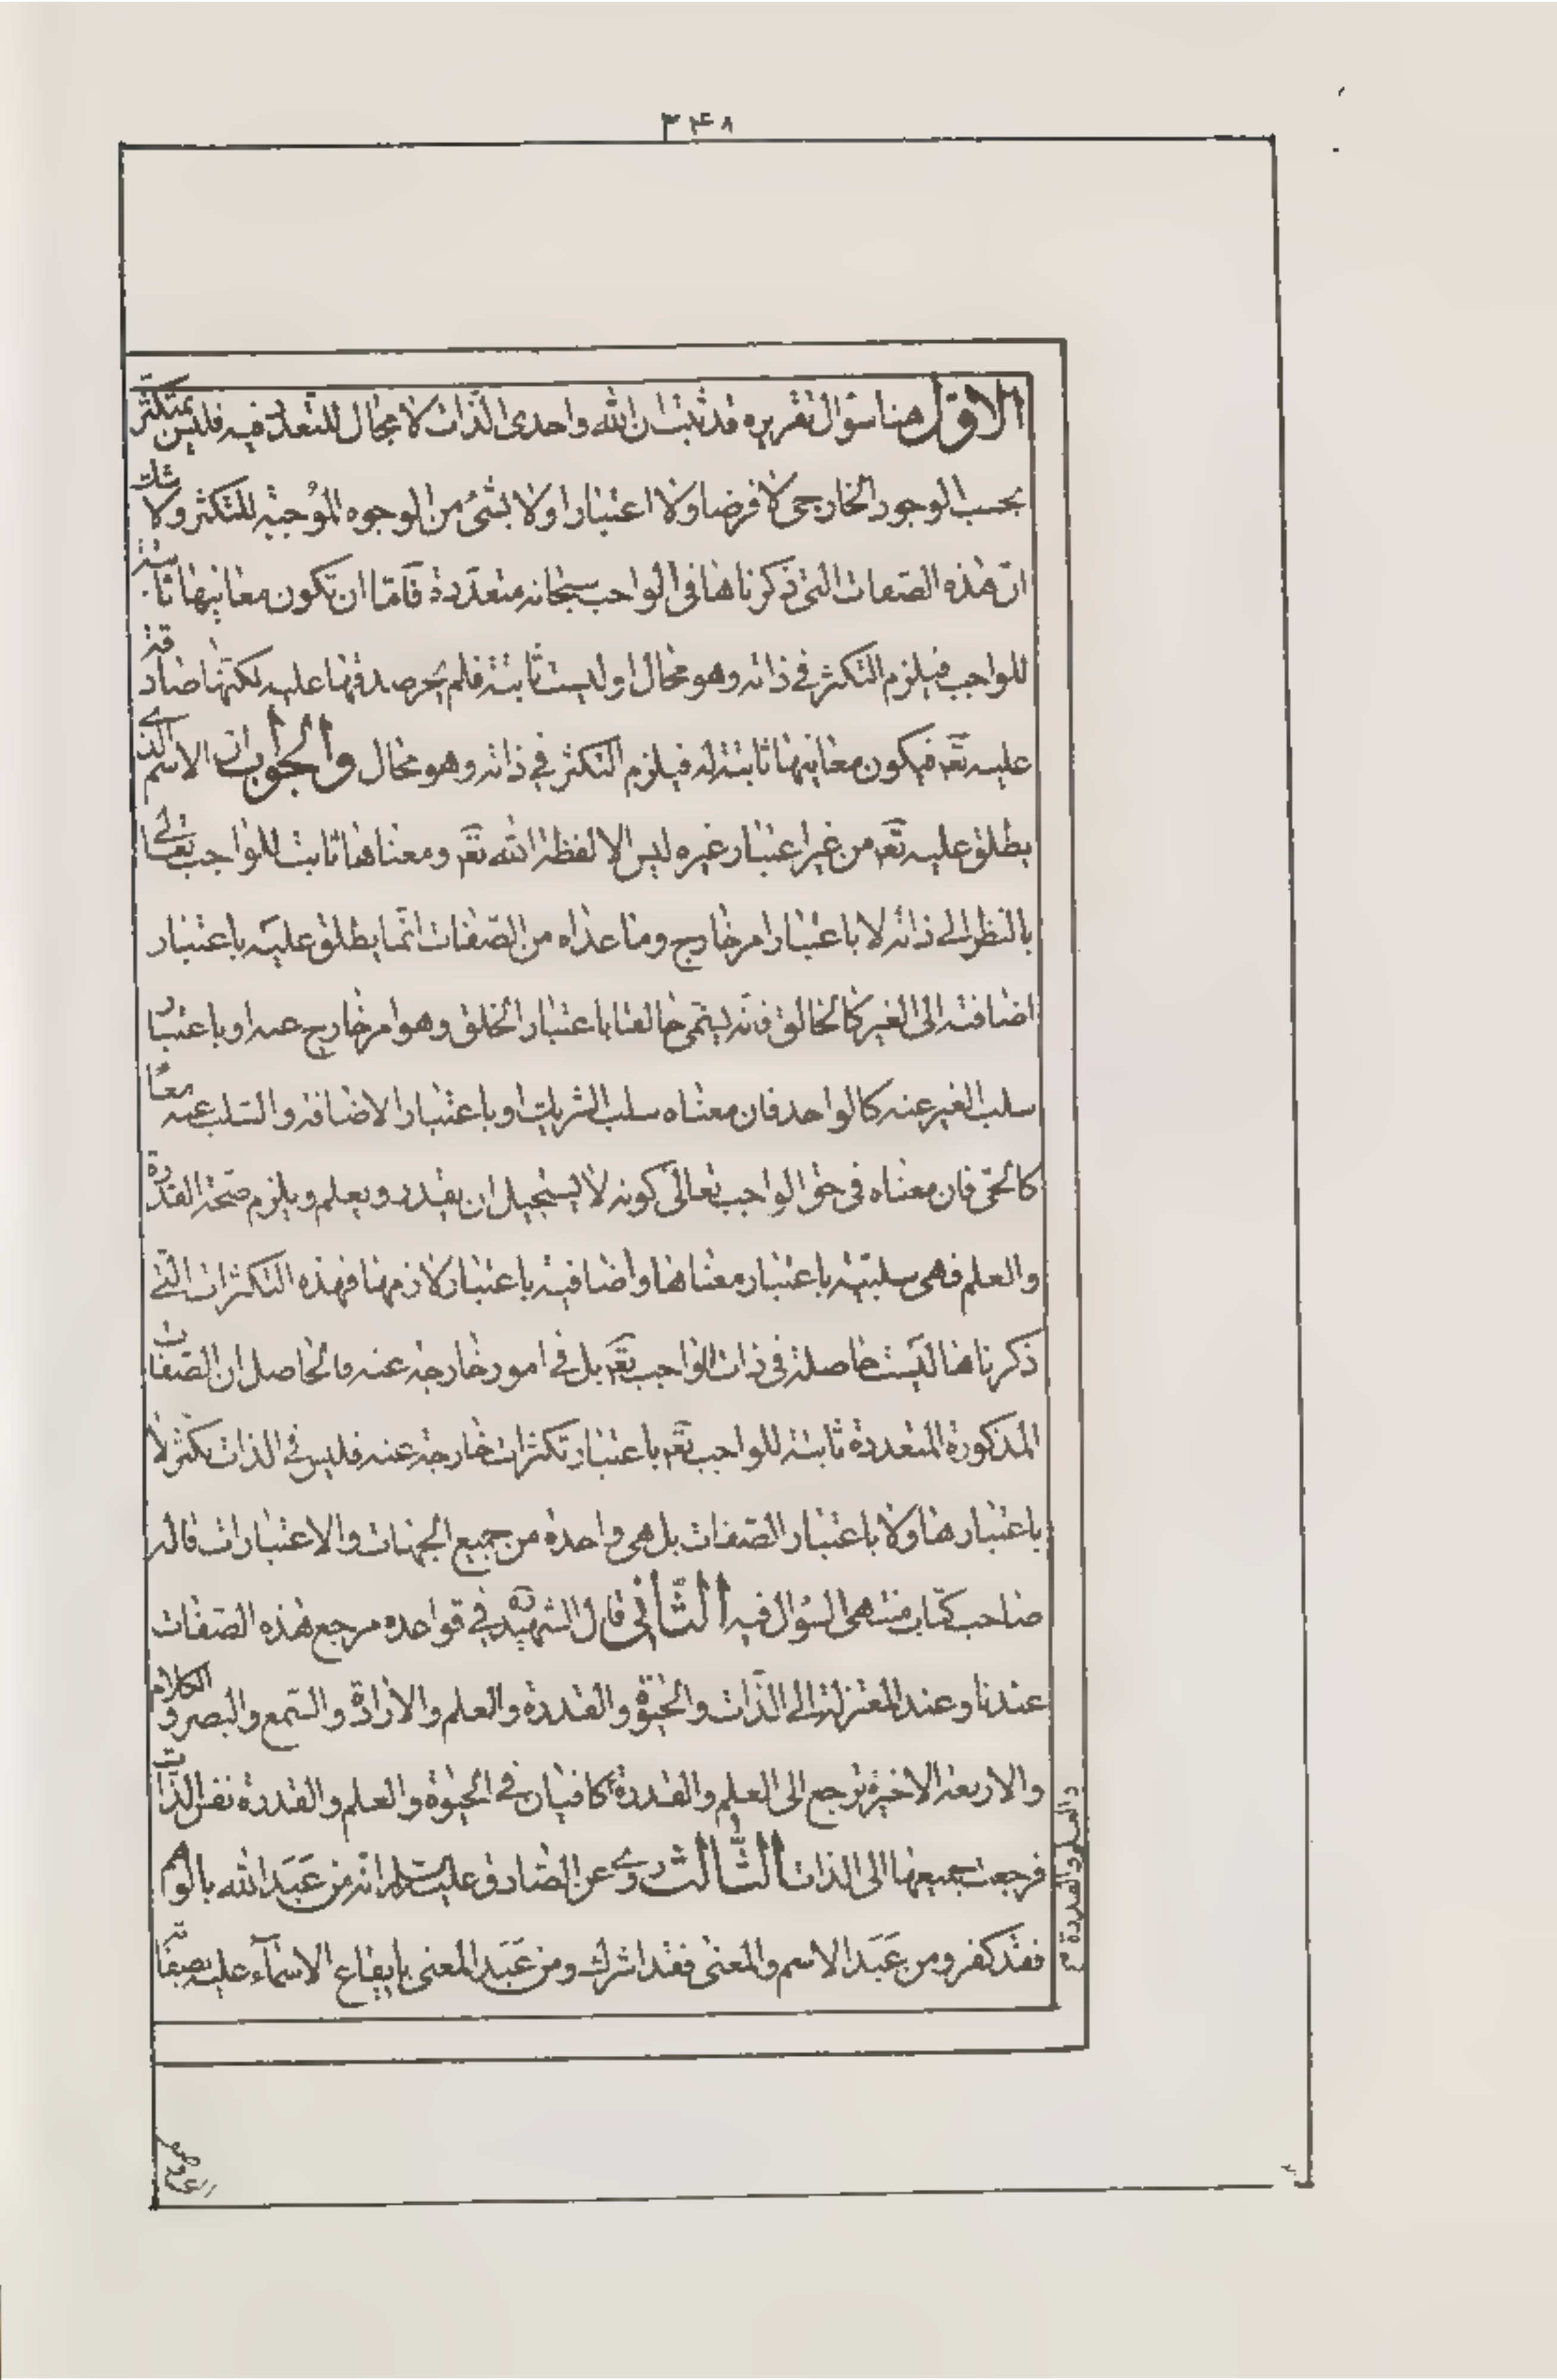 ۳۴۸
الاوّل هنا سؤال تقريره قد ثبت ان الله واحدى الذات لا مجال للتعدّد فيه فليس بمتكثّر
بحسب الوجود الخارجى لا فرضا ولا اعتبارا ولا بشئ من الوجوه الموُجبة للتكثر ولا شك
انّ هذه الصّفات التى ذكرناها فى الواجب سبحانه متعدّدة فامّا ان تكون معانيها ثابتة
للواجب فيلزم التكثر في ذاته وهو محال او ليست ثابتة فلم يجز صدقها عليه لكنّها صادقة
عليه تعّم فيكون معانيها ثابتة له فيلزم التكثر في ذاته وهو محال والجواب انّ الاسم الذي
يطلق عليه تعّم من غير اعتبار غيره ليس الا لفظة الله تعّم ومعناها ثابت للواجب تعالى
بالنظر الى ذاته لا باعتبار امر خارج وما عداه من الصّفات انّما يطلق عليه باعتبار
اضافته الى الغير كالخالق فانّه يسمّى خالقا باعتبار الخلق وهو امر خارج عنه او باعتبار
سلب الغير عنه كالواحد فان معناه سلب الشريك او باعتبار الاضافة والسّلب عنه معًا
كالحىّ فان معناه فى حق الواجب تعالى كونه لا يستحيل ان يقدر ويعلم ويلزم صحّة القدرة
والعلم فهى سلبيّة باعتبار معناها واضافية باعتبار لازمها فهذه التكثرات الّتي
ذكرناها ليست حاصلة فى ذات الواجب تعّم بل في امور خارجة عنه فالحاصل ان الصّفات
المذكورة المتعددة ثابتة للواجب تعّم باعتبار تكثرات خارجة عنه فليس في الذات تكثر لا
باعتبارها ولا باعتبار الصّفات بل هى واحدة من جميع الجهات والاعتبارات قاله
صاحب كتاب منتهى السّؤال فيه الثّانى قال الشهيد ره في قواعده مرجع هذه الصّفات
عندنا وعند المعتزلة الى الذّات والحيٰوة والقدرة والعلم والارادة والسّمع والبصر والكلام
والاربعة الاخيرة ترجع الى العلم والقدرة كافيان في الحيٰوة والعلم والقدرة نفس الذّات
فرجعت جميعها الى الذات الثّالث روي عن الصّادق عليه السلام انّه من عَبَدَ الله بالوهم
فقد كفر ومن عَبَدَ الاسم والمعنى فقد اشرك ومن عَبَد المعنى بايقاع الاسمآء عليه بصفاته
والعلم والقدرة